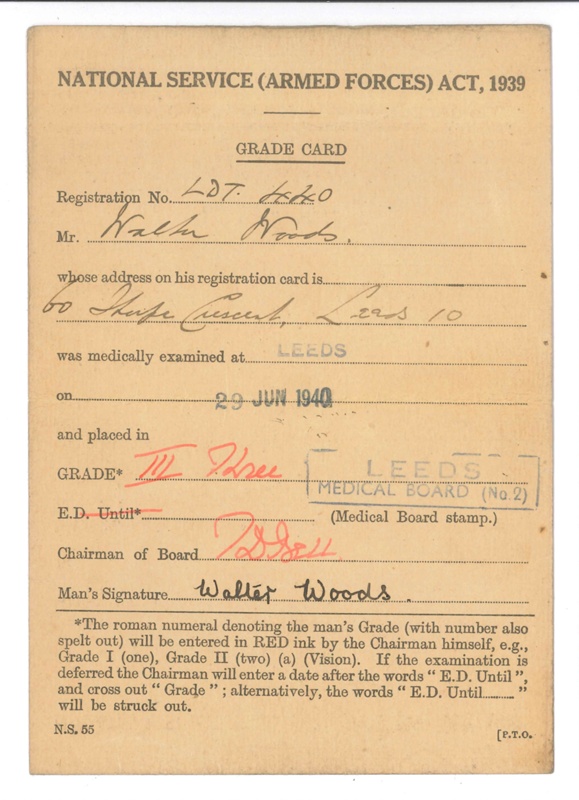 NATIONAL SERVICE (ARMED FORCES) ACT, 1939
GRADE CARD
Registration No. LDT. 440
Mr. Walter Woods.
whose address on his registration card is
60 Thorpe Crescent, Leeds 10
was medically examined at LEEDS
on 29 JUN 1940
and placed in
GRADE* III Three
LEEDS
MEDICAL BOARD (No. 2)
E.D. Until* (Medical Board stamp.)
Chairman of Board
Man's Signature Walter Woods.
*The roman numeral denoting the man's Grade (with number also
spelt out) will be entered in RED ink by the Chairman himself, e.g.,
Grade I (one), Grade II (two) (a) (Vision). If the examination is
deferred the Chairman will enter a date after the words "E.D. Until",
and cross out "Grade"; alternatively, the words "E.D. Until........"
will be struck out.
N.S. 55 [P.T.O.